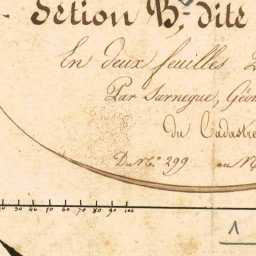 Section B, dite
En deux feuilles
Par Sarnegue, Géom
du Cadastre
Du No. 299 au No
20 30 40 50 60 70 80 90 100
1